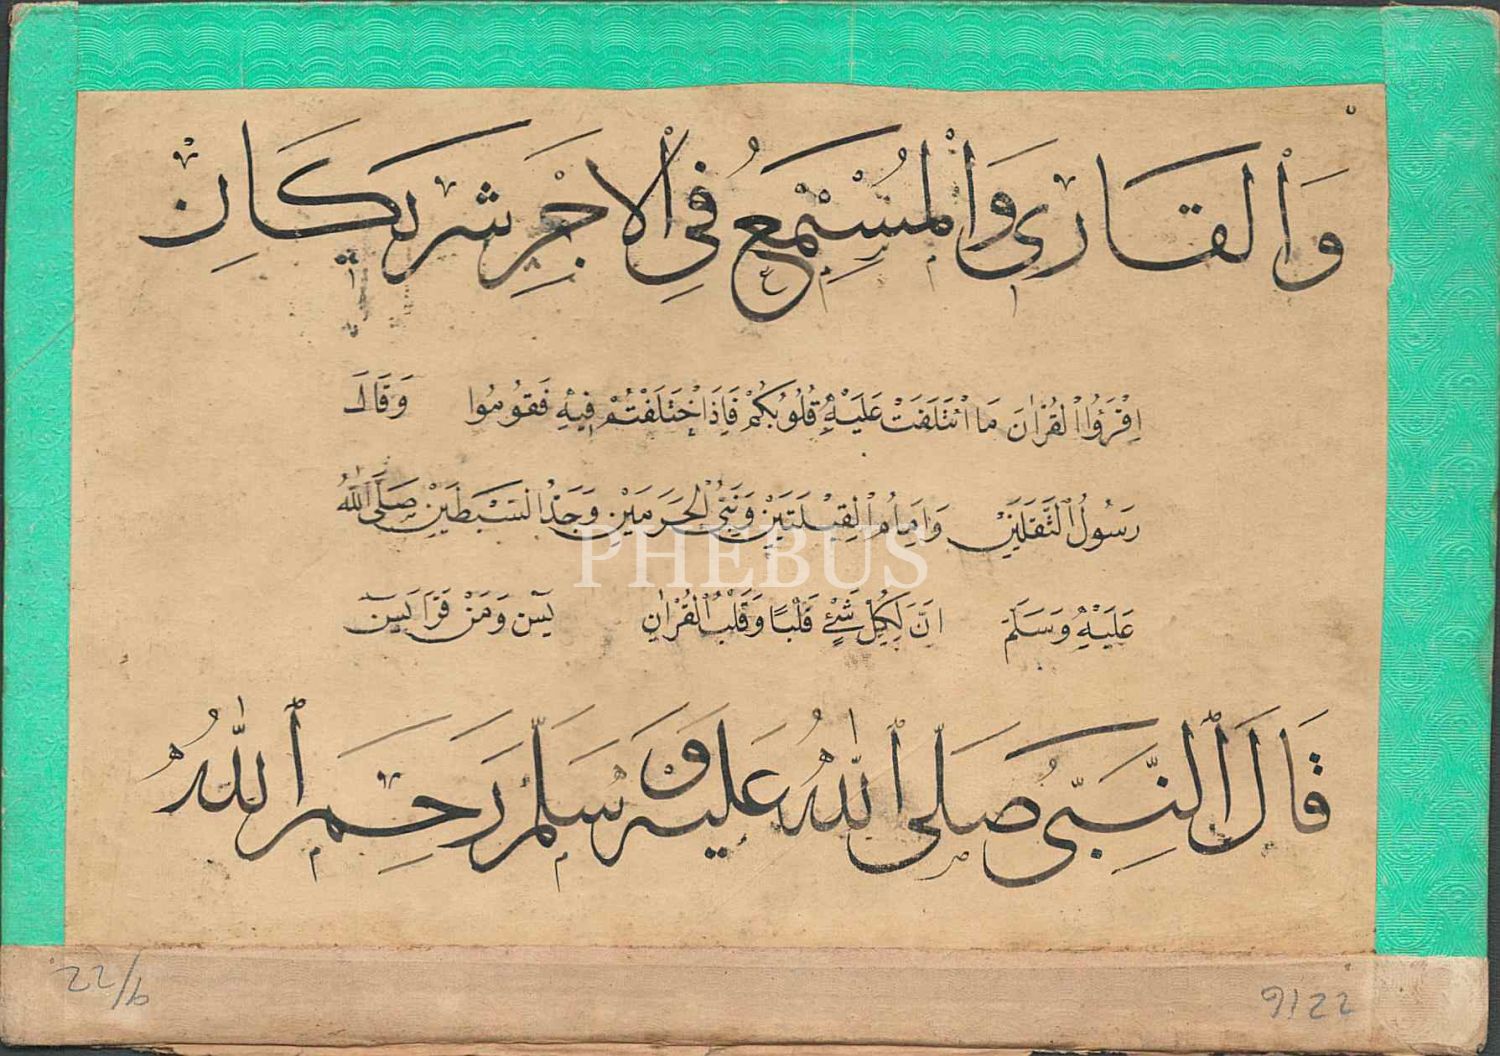 وَالْقَارِئُ وَالْمُسْتَمِعُ فِي الْاَجْرِ شَرِيكَانِ
اِقْرَؤُا الْقُرْاٰنَ مَا ائْتَلَفَتْ عَلَيْهِ قُلُوبُكُمْ فَاِذَا اخْتَلَفْتُمْ فِيهِ فَقُومُوا وَقَالَ
رَسُولُ الثَّقَلَيْنِ وَاِمَامُ الْقِبْلَتَيْنِ وَنَبِيُّ الْحَرَمَيْنِ وَجَدُّ السِّبْطَيْنِ صَلَّى اللّٰهُ
عَلَيْهِ وَسَلَّمَ اِنَّ لِكُلِّ شَيْءٍ قَلْبًا وَقَلْبُ الْقُرْاٰنِ يٰسٓ وَمَنْ قَرَاَ يٰسٓ
قَالَ النَّبِيُّ صَلَّى اللّٰهُ عَلَيْهِ وَسَلَّمَ رَحِمَ اللّٰهُ
PHEBUS
9/22
9122